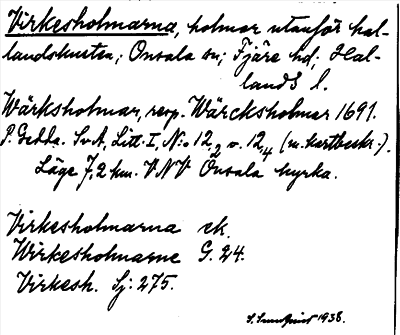 Virkesholmarna, holmar utanför hal-
landskusten; Onsala sn; Fjäre hd; Hal-
lands l.
Wärksholmar, resp. Wärcksholmar 1691.
P. Gedda. SvA, Litt. I, N:o 12,2 o. 12,4 (m. kartbeskr.).
Läge 7,2 km. VNV Onsala kyrka.
Virkesholmarna ek.
Wirkesholmarne G. 24.
Virkesh. Sj: 275.
1938.